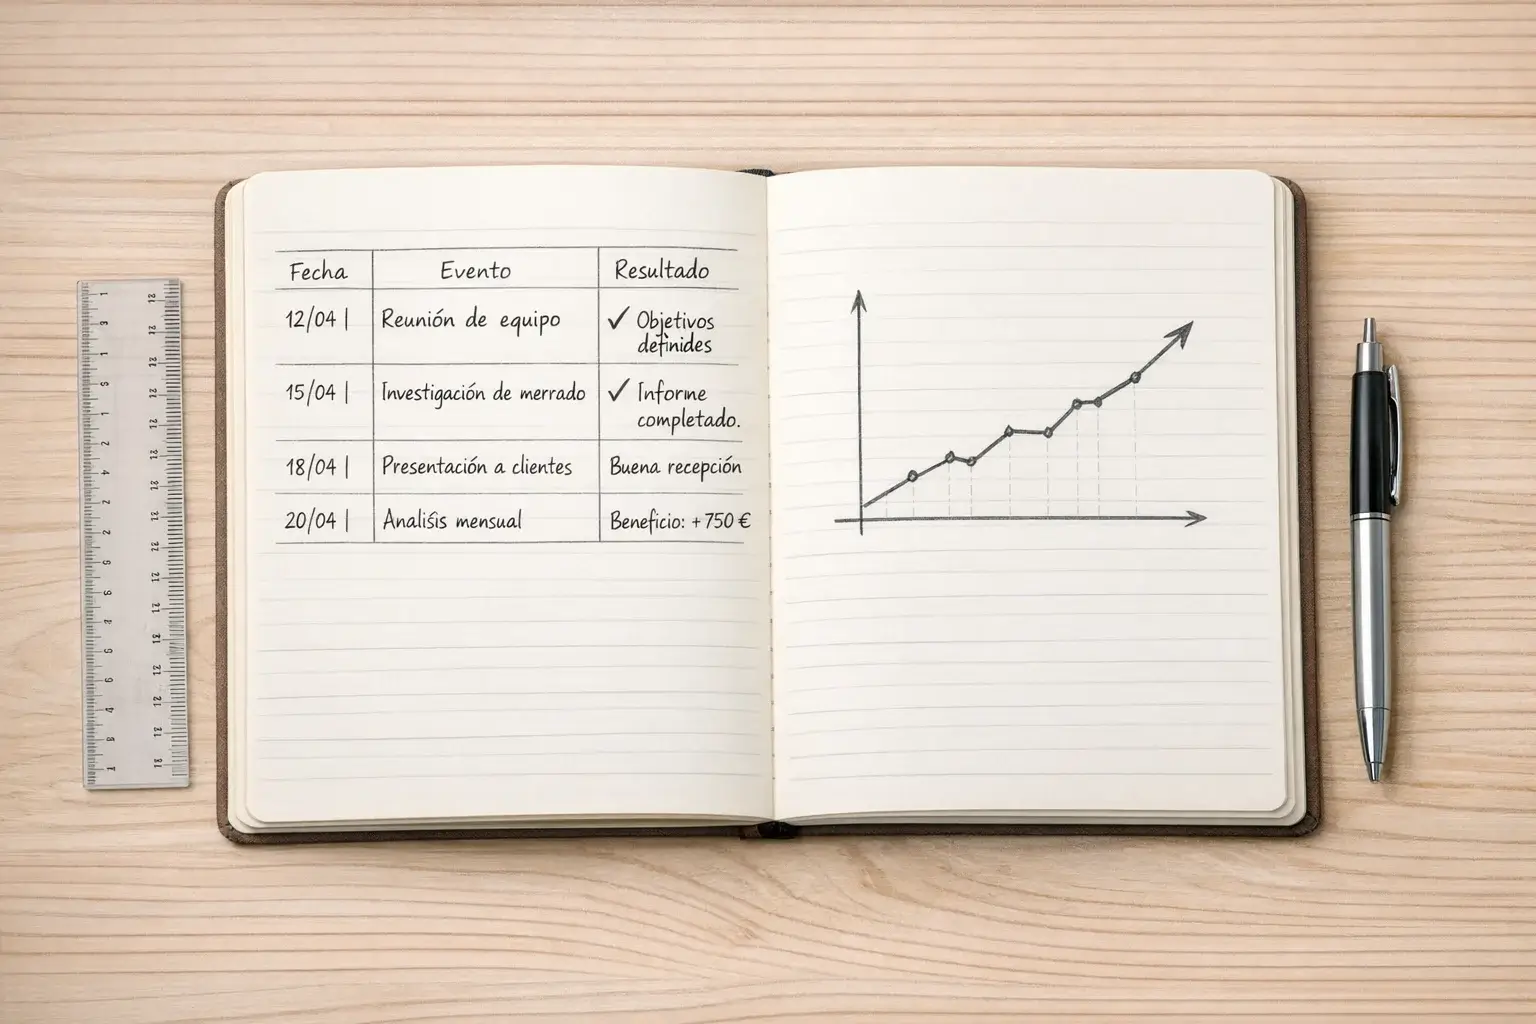 Fecha Evento Resultado
12/04 | Reunión de equipo ✓ Objetivos
definides
15/04 | Investigación de merrado ✓ Informe
completado.
18/04 | Presentación a clientes Buena recepción
20/04 | Analisis mensual Beneficio: +750 €